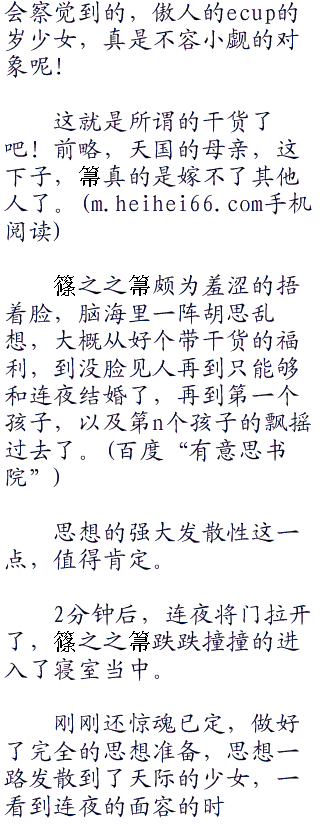 会察觉到的，傲人的ecup的
岁少女，真是不容小觑的对
象呢！
这就是所谓的干货了
吧！前略，天国的母亲，这
下子，箒真的是嫁不了其他
人了。(m.heihei66.com手机
阅读)
篠之之箒颇为羞涩的捂
着脸，脑海里一阵胡思乱
想，大概从好个带干货的福
利，到没脸见人再到只能够
和连夜结婚了，再到第一个
孩子，以及第n个孩子的飘摇
过去了。(百度“有意思书
院”)
思想的强大发散性这一
点，值得肯定。
2分钟后，连夜将门拉开
了，篠之之箒跌跌撞撞的进
入了寝室当中。
刚刚还惊魂已定，做好
了完全的思想准备，思想一
路发散到了天际的少女，一
看到连夜的面容的时